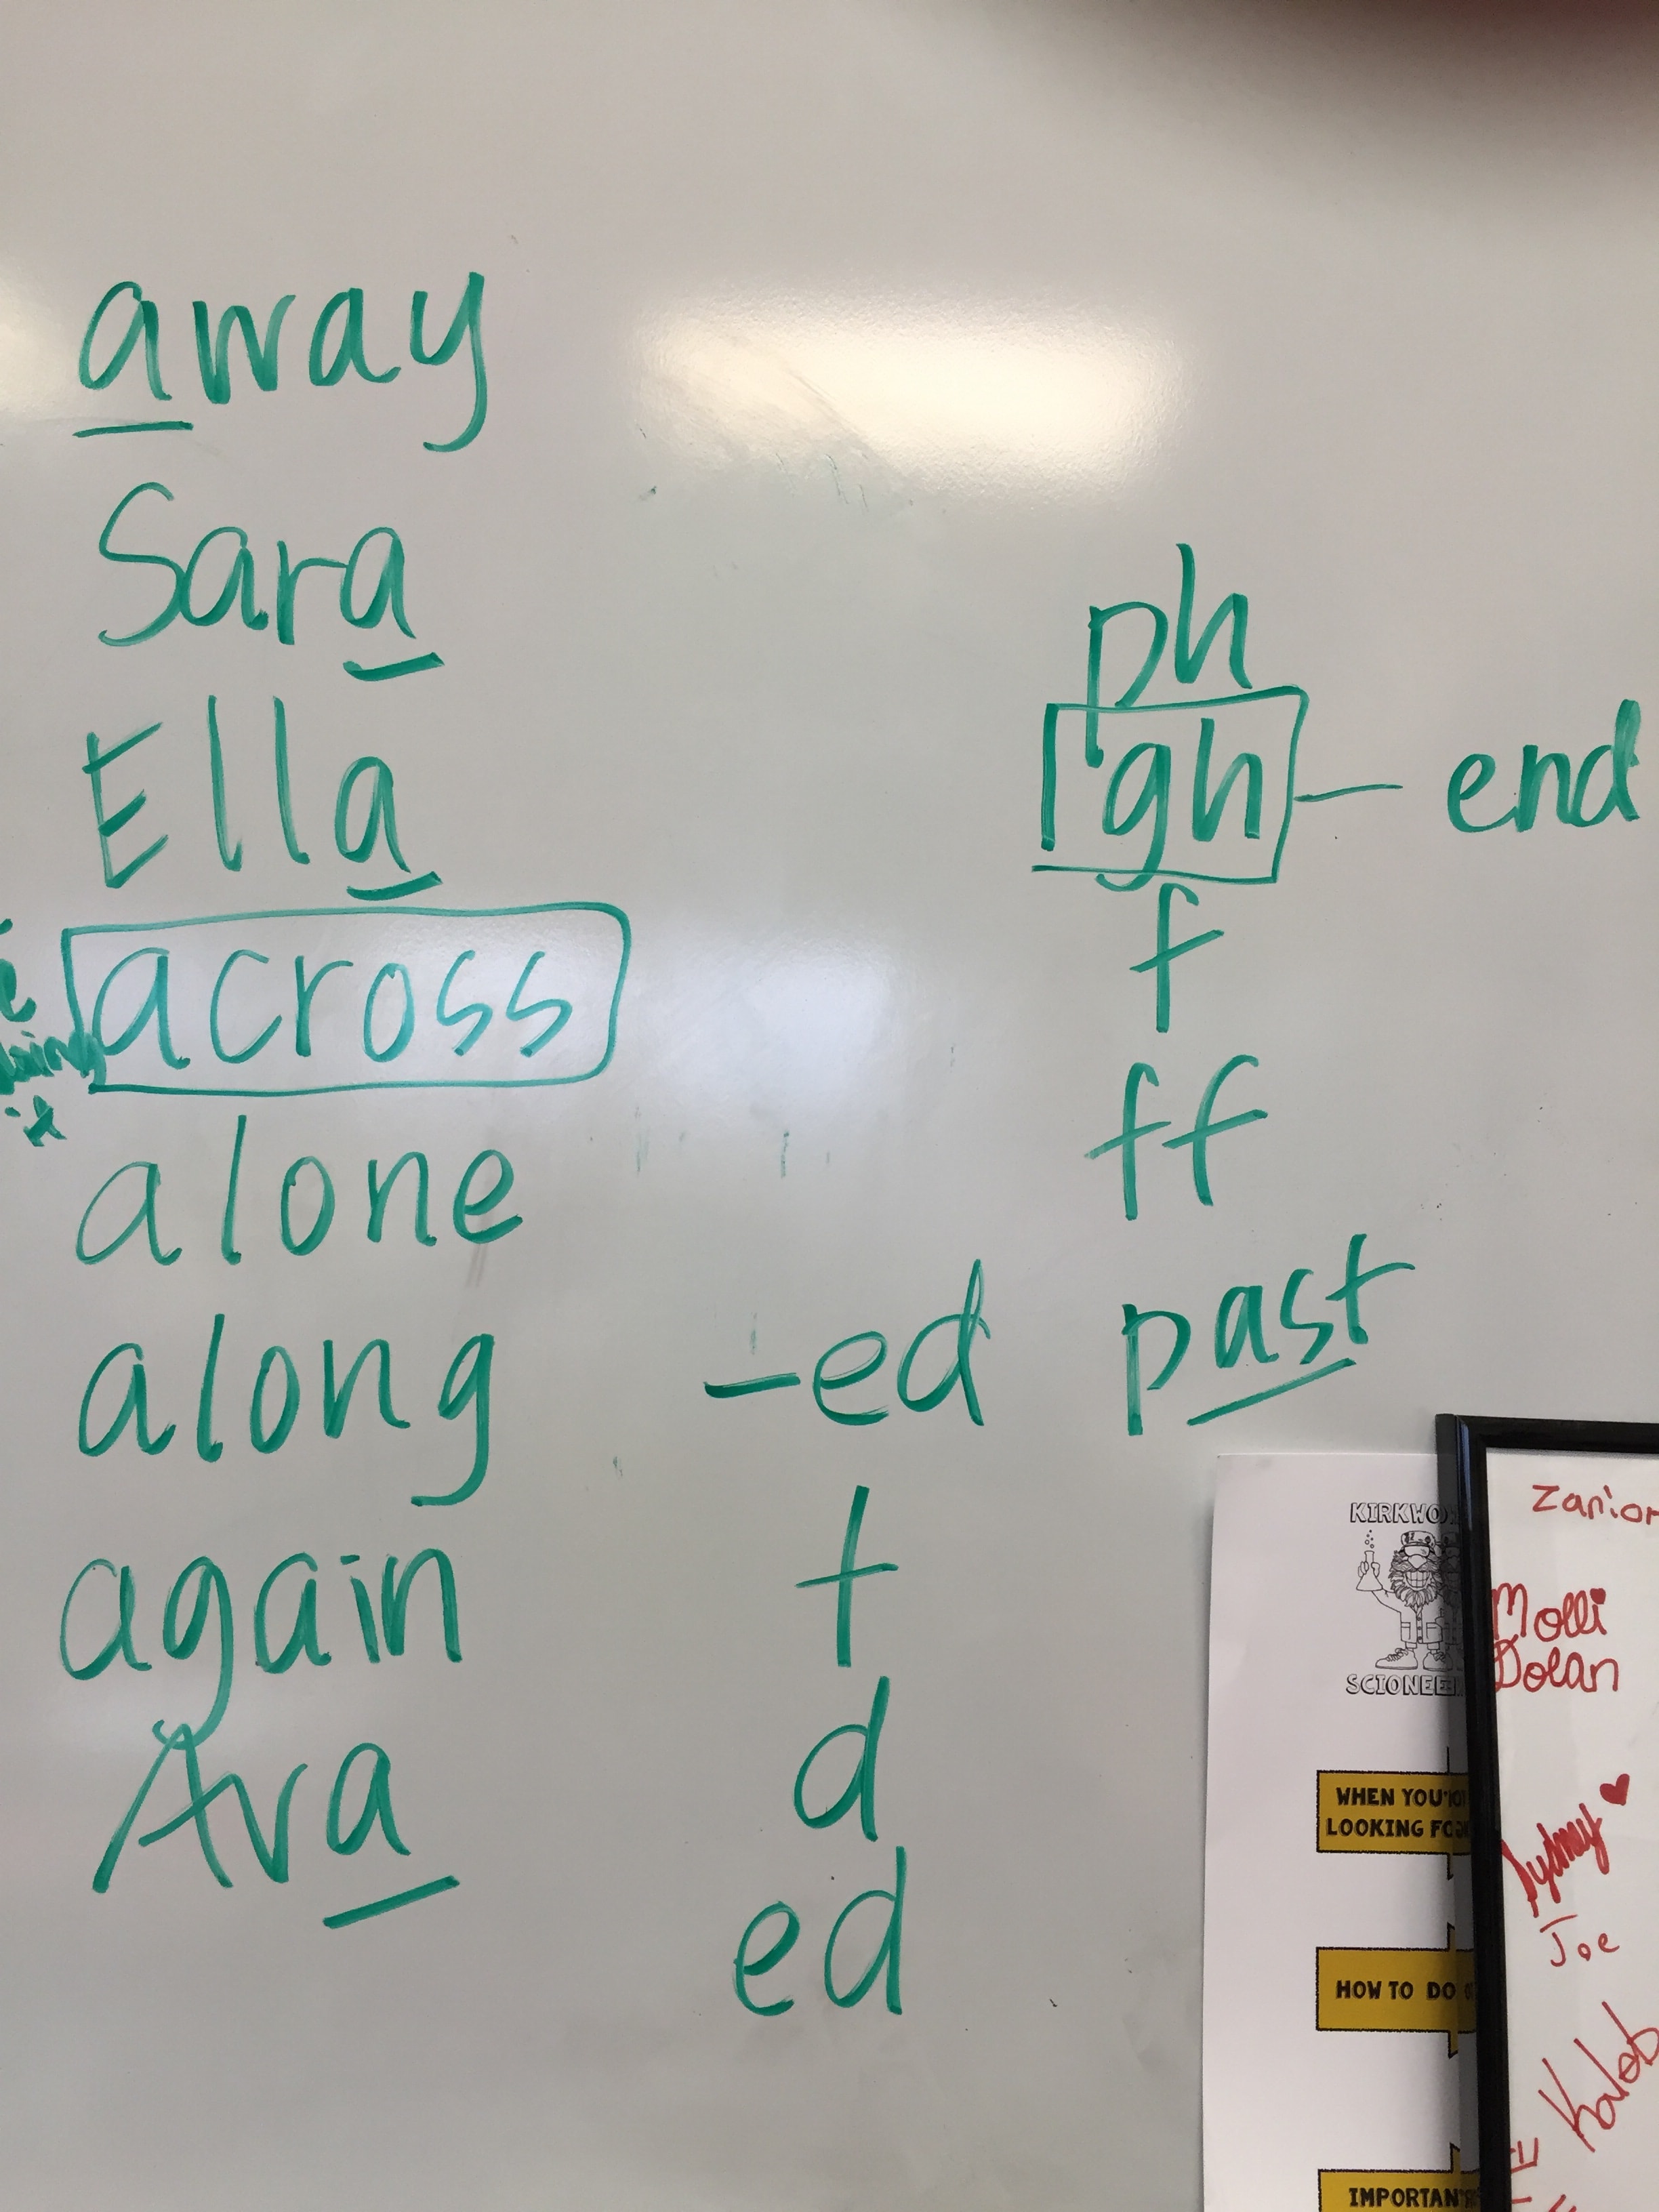 away
Sara
Ella
across
it
alone
along
again
Ava
ph
gh - end
f
ff
-ed past
t
d
ed
KIRKWO
SCIONEE
WHEN YOU
LOOKING FO
HOW TO DO
IMPORTAN
Molli
Dolan
Sydney
Joe
Kaleb